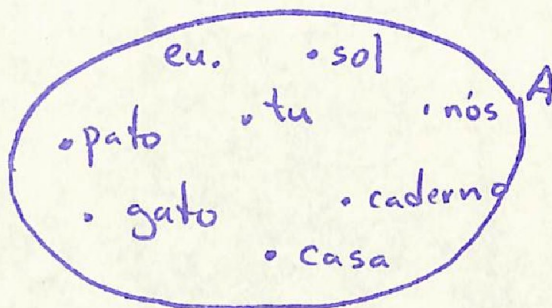 eu. • sol
A
• pato • tu • nós
• gato • caderno
• casa